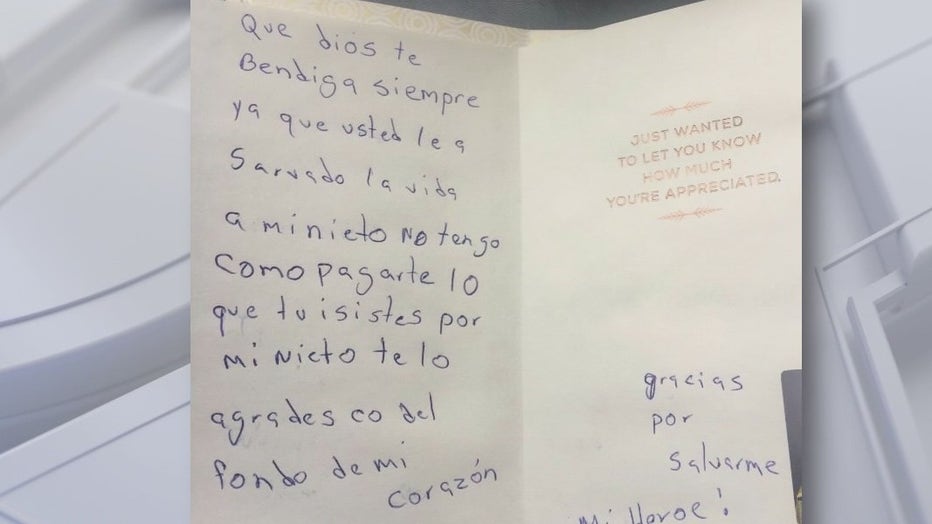 Que dios te
Bendiga siempre
ya que usted le a
Sarvado la vida
a mi nieto No tengo
como pagarte lo
que tu isistes por
mi Nieto te lo
agradesco del
fondo de mi
corazón
JUST WANTED
TO LET YOU KNOW
HOW MUCH
YOU'RE APPRECIATED.
gracias
por
Salvarme
mi Heroe!